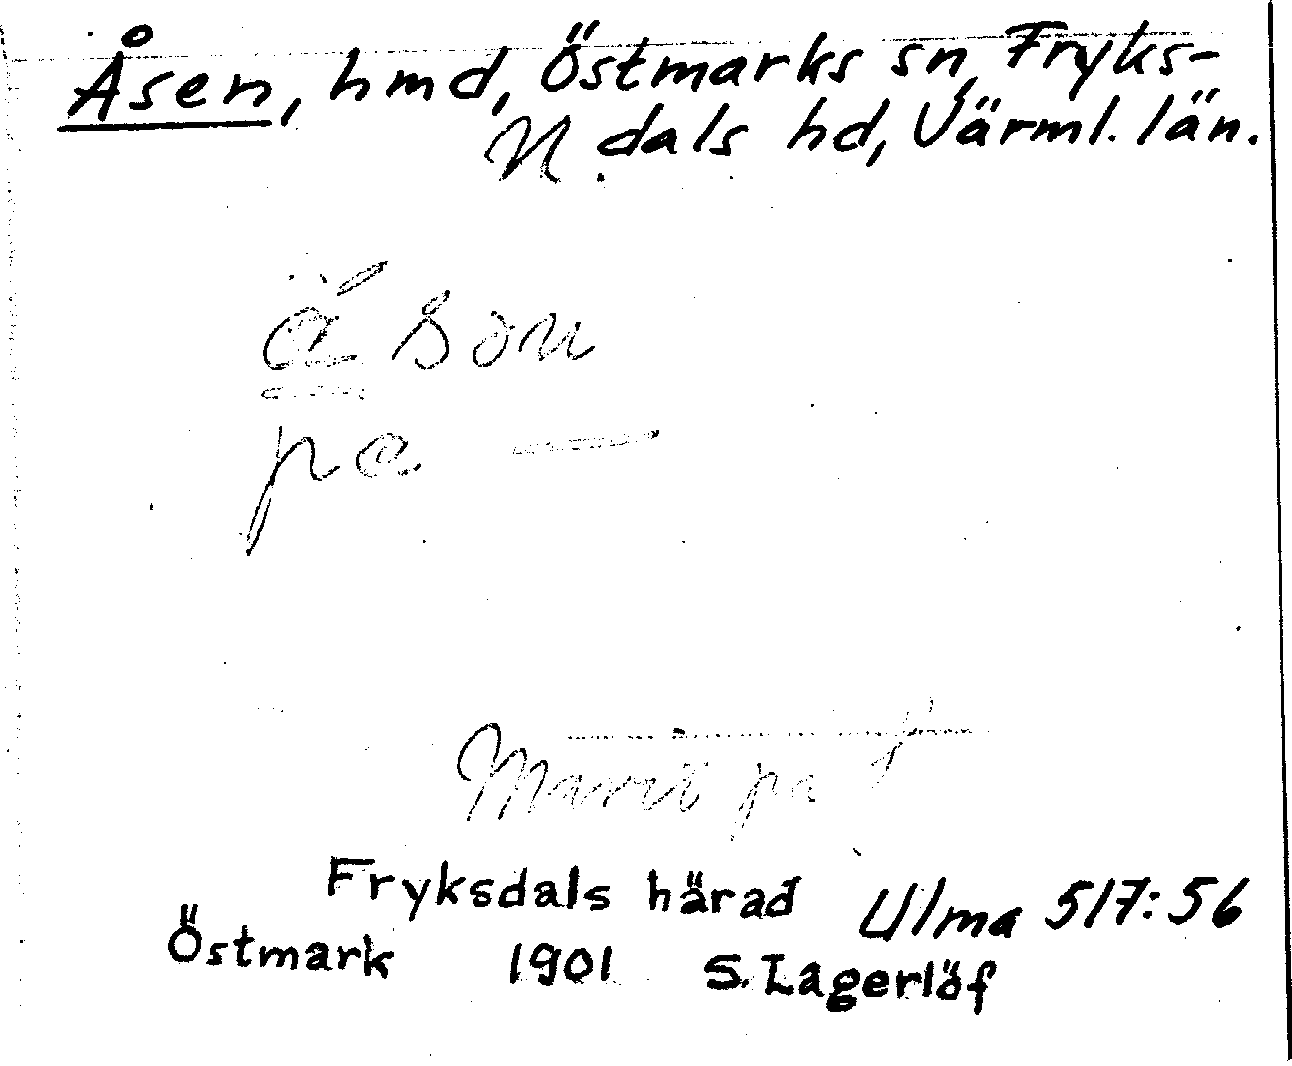 Åsen, hmd, Östmarks sn, Fryks-
N dals hd, Värml. län.
pa —
pa
Fryksdals härad Ulma 517:56
Östmark 1901 S. Lagerlöf